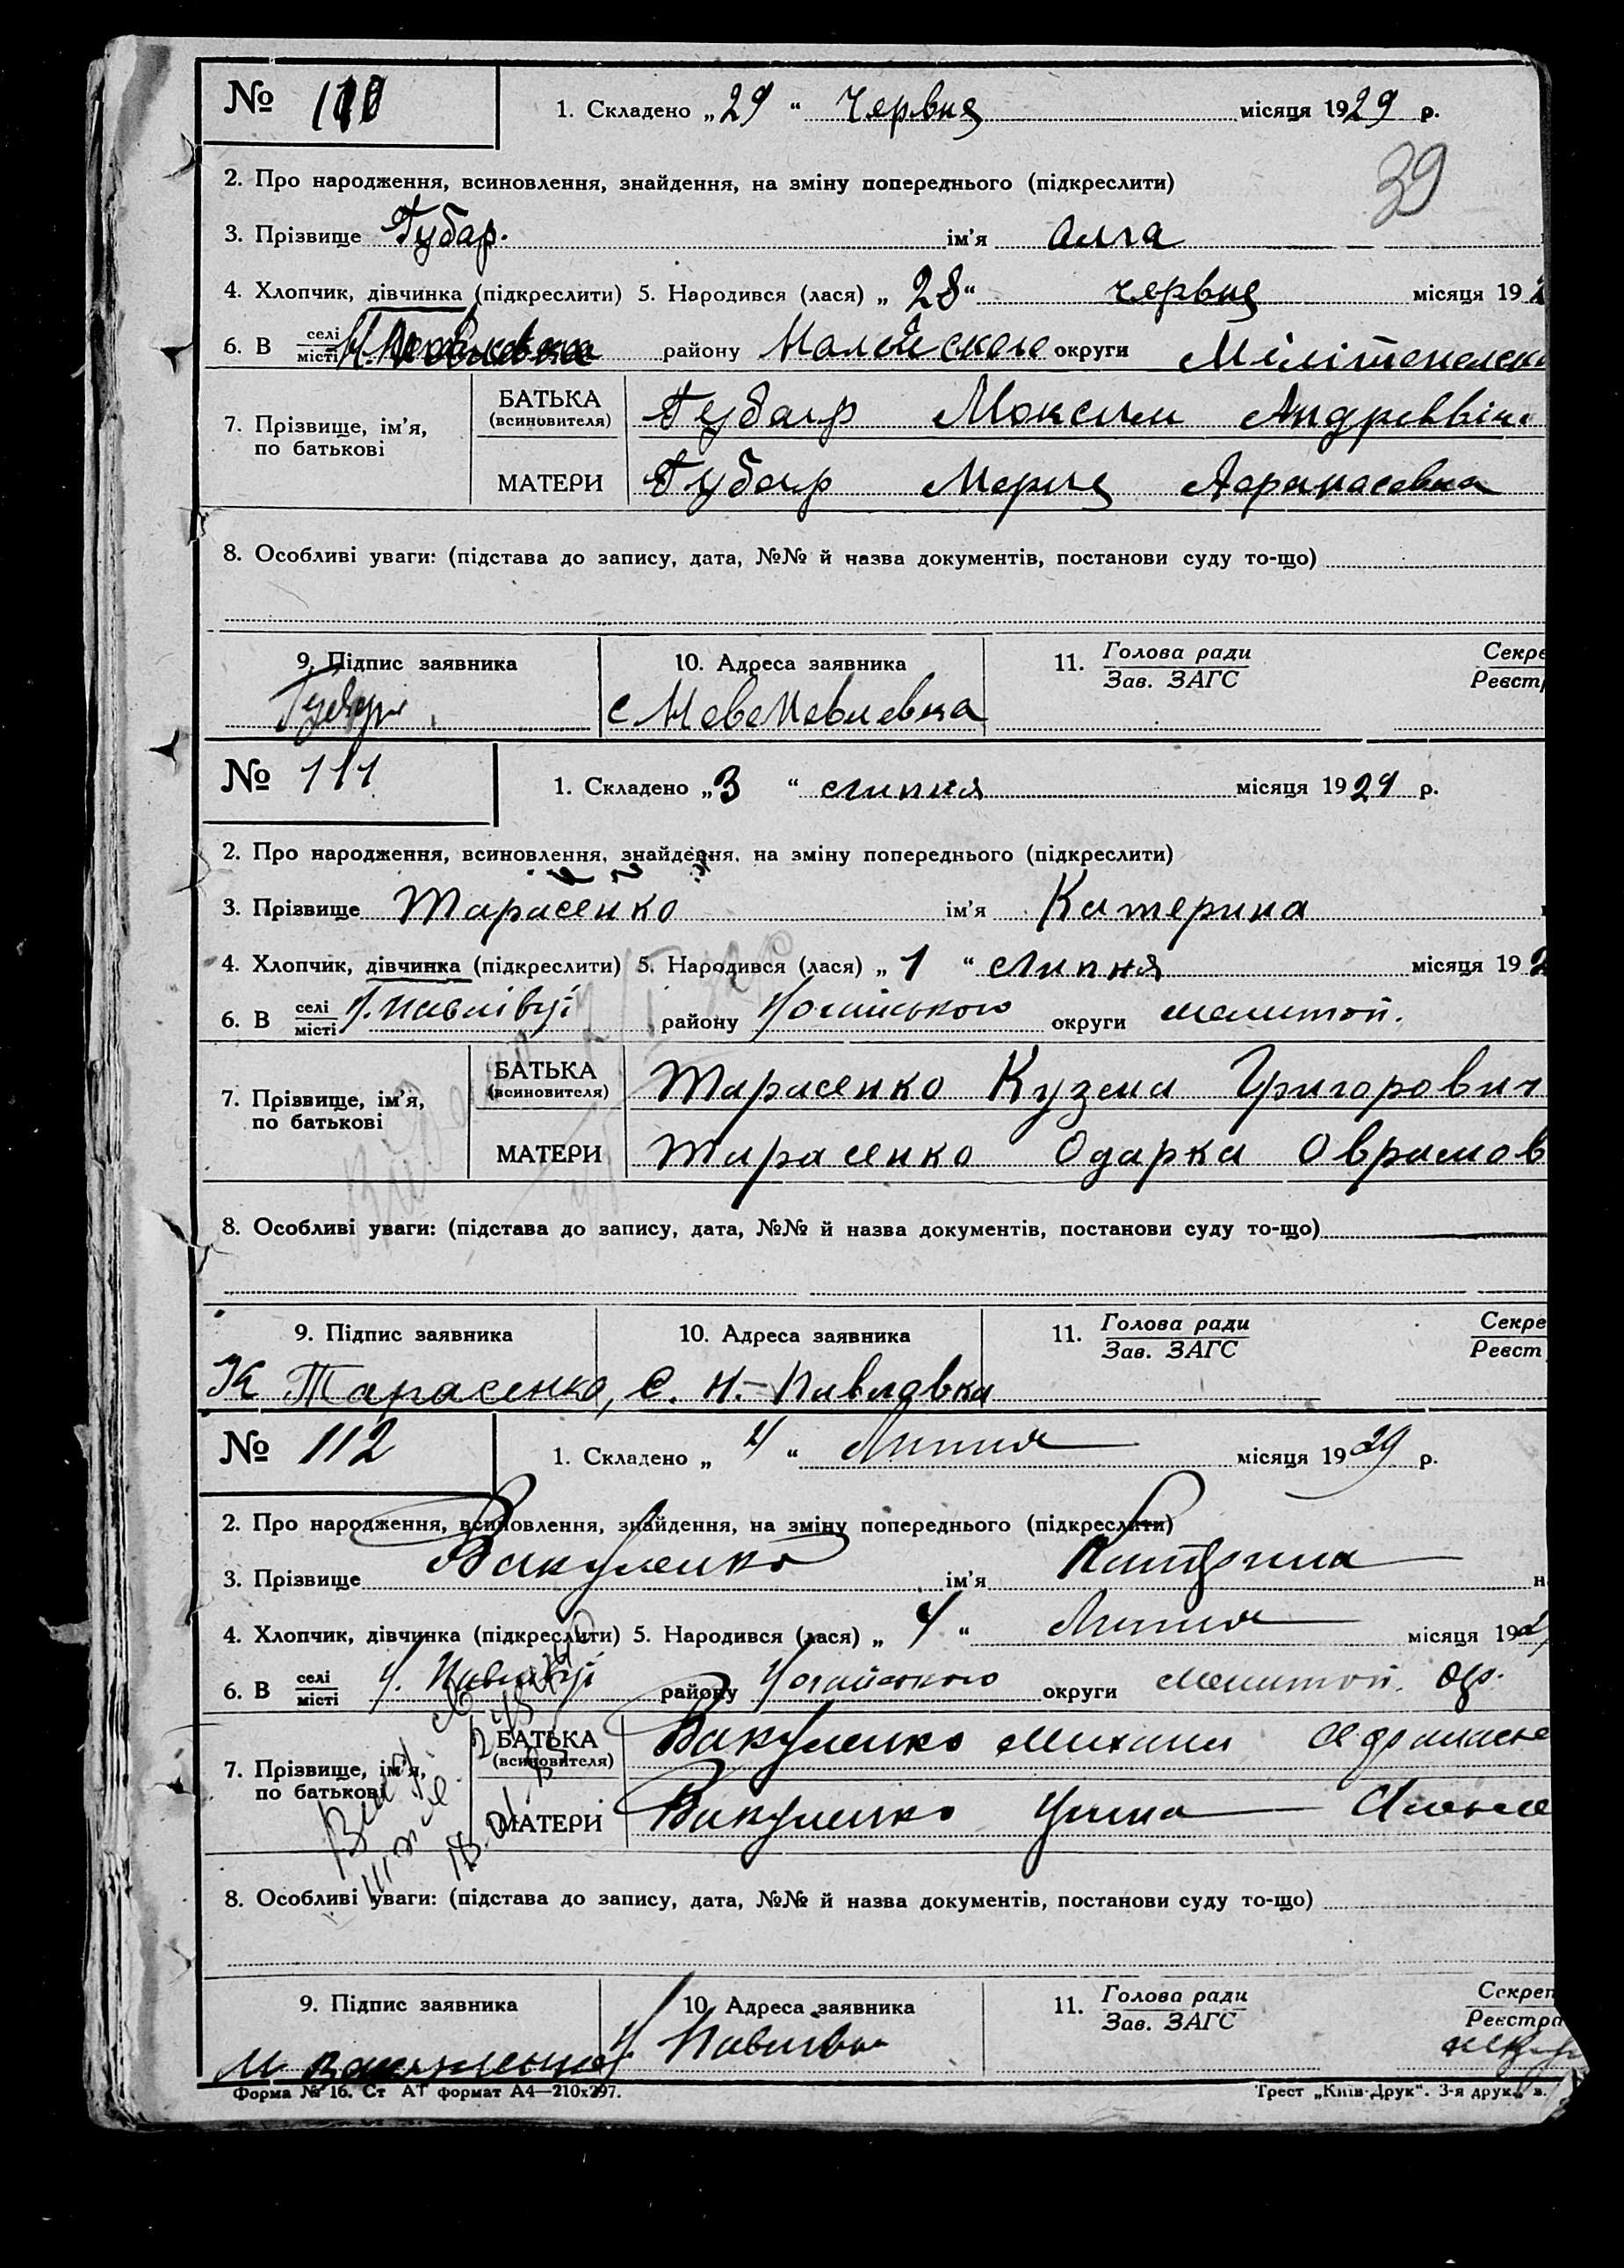 № 110
1. Складено „29“ червня місяця 1929 р.
39
2. Про народження, всиновлення, знайдення, на зміну попереднього (підкреслити)
3. Прізвище Губар. ім’я Олга
4. Хлопчик, дівчинка (підкреслити) 5. Народився (лася) „28“ червня місяця 192
6. В селі місті району округи
7. Прізвище, ім’я, по батькові
БАТЬКА (всиновителя) Губар Максим
МАТЕРИ Губар Мария
8. Особливі уваги: (підстава до запису, дата, №№ й назва документів, постанови суду то-що)
9. Підпис заявника 10. Адреса заявника 11. Голова ради Секре
Зав. ЗАГС Реєстр
с НовоПавловка
№ 111
1. Складено „3“ липня місяця 1929 р.
2. Про народження, всиновлення, знайдення, на зміну попереднього (підкреслити)
3. Прізвище Тарасенко ім’я Катерина
4. Хлопчик, дівчинка (підкреслити) 5. Народився (лася) „1“ липня місяця 192
6. В селі місті Н. Павлівці району Ногайського округи Мелітоп.
7. Прізвище, ім’я, по батькові
БАТЬКА (всиновителя) Тарасенко Кузма Григорович
МАТЕРИ Тарасенко Одарка Оврамов
8. Особливі уваги: (підстава до запису, дата, №№ й назва документів, постанови суду то-що)
9. Підпис заявника 10. Адреса заявника 11. Голова ради Секре
Зав. ЗАГС Реєст
К Тарасенко, с. Н.-Павловка
№ 112
1. Складено „4“ Липня місяця 1929 р.
2. Про народження, всиновлення, знайдення, на зміну попереднього (підкреслити)
3. Прізвище Вакуленко ім’я
4. Хлопчик, дівчинка (підкреслити) 5. Народився (лася) „ “ Липня місяця 192
6. В селі місті Н. Павлівці району Ногайського округи Мелітоп. окр.
7. Прізвище, ім’я, по батькові
БАТЬКА (всиновителя) Вакуленко Михаил
МАТЕРИ Вакуленко
8. Особливі уваги: (підстава до запису, дата, №№ й назва документів, постанови суду то-що)
9. Підпис заявника 10. Адреса заявника 11. Голова ради Секрет
Зав. ЗАГС Реєстра
Н Павлівка
Форма № 16. Ст А4 формат А4—210x297. Трест „Київ-Друк“. 3-я друк.